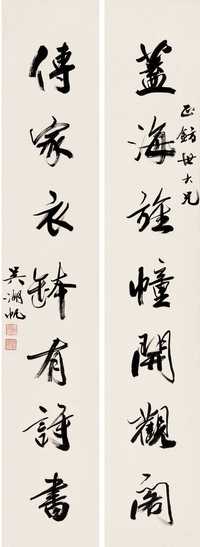 蓋海旌幢開觀閣
正鈁世大兄
傳家衣鉢有詩書
吳湖帆